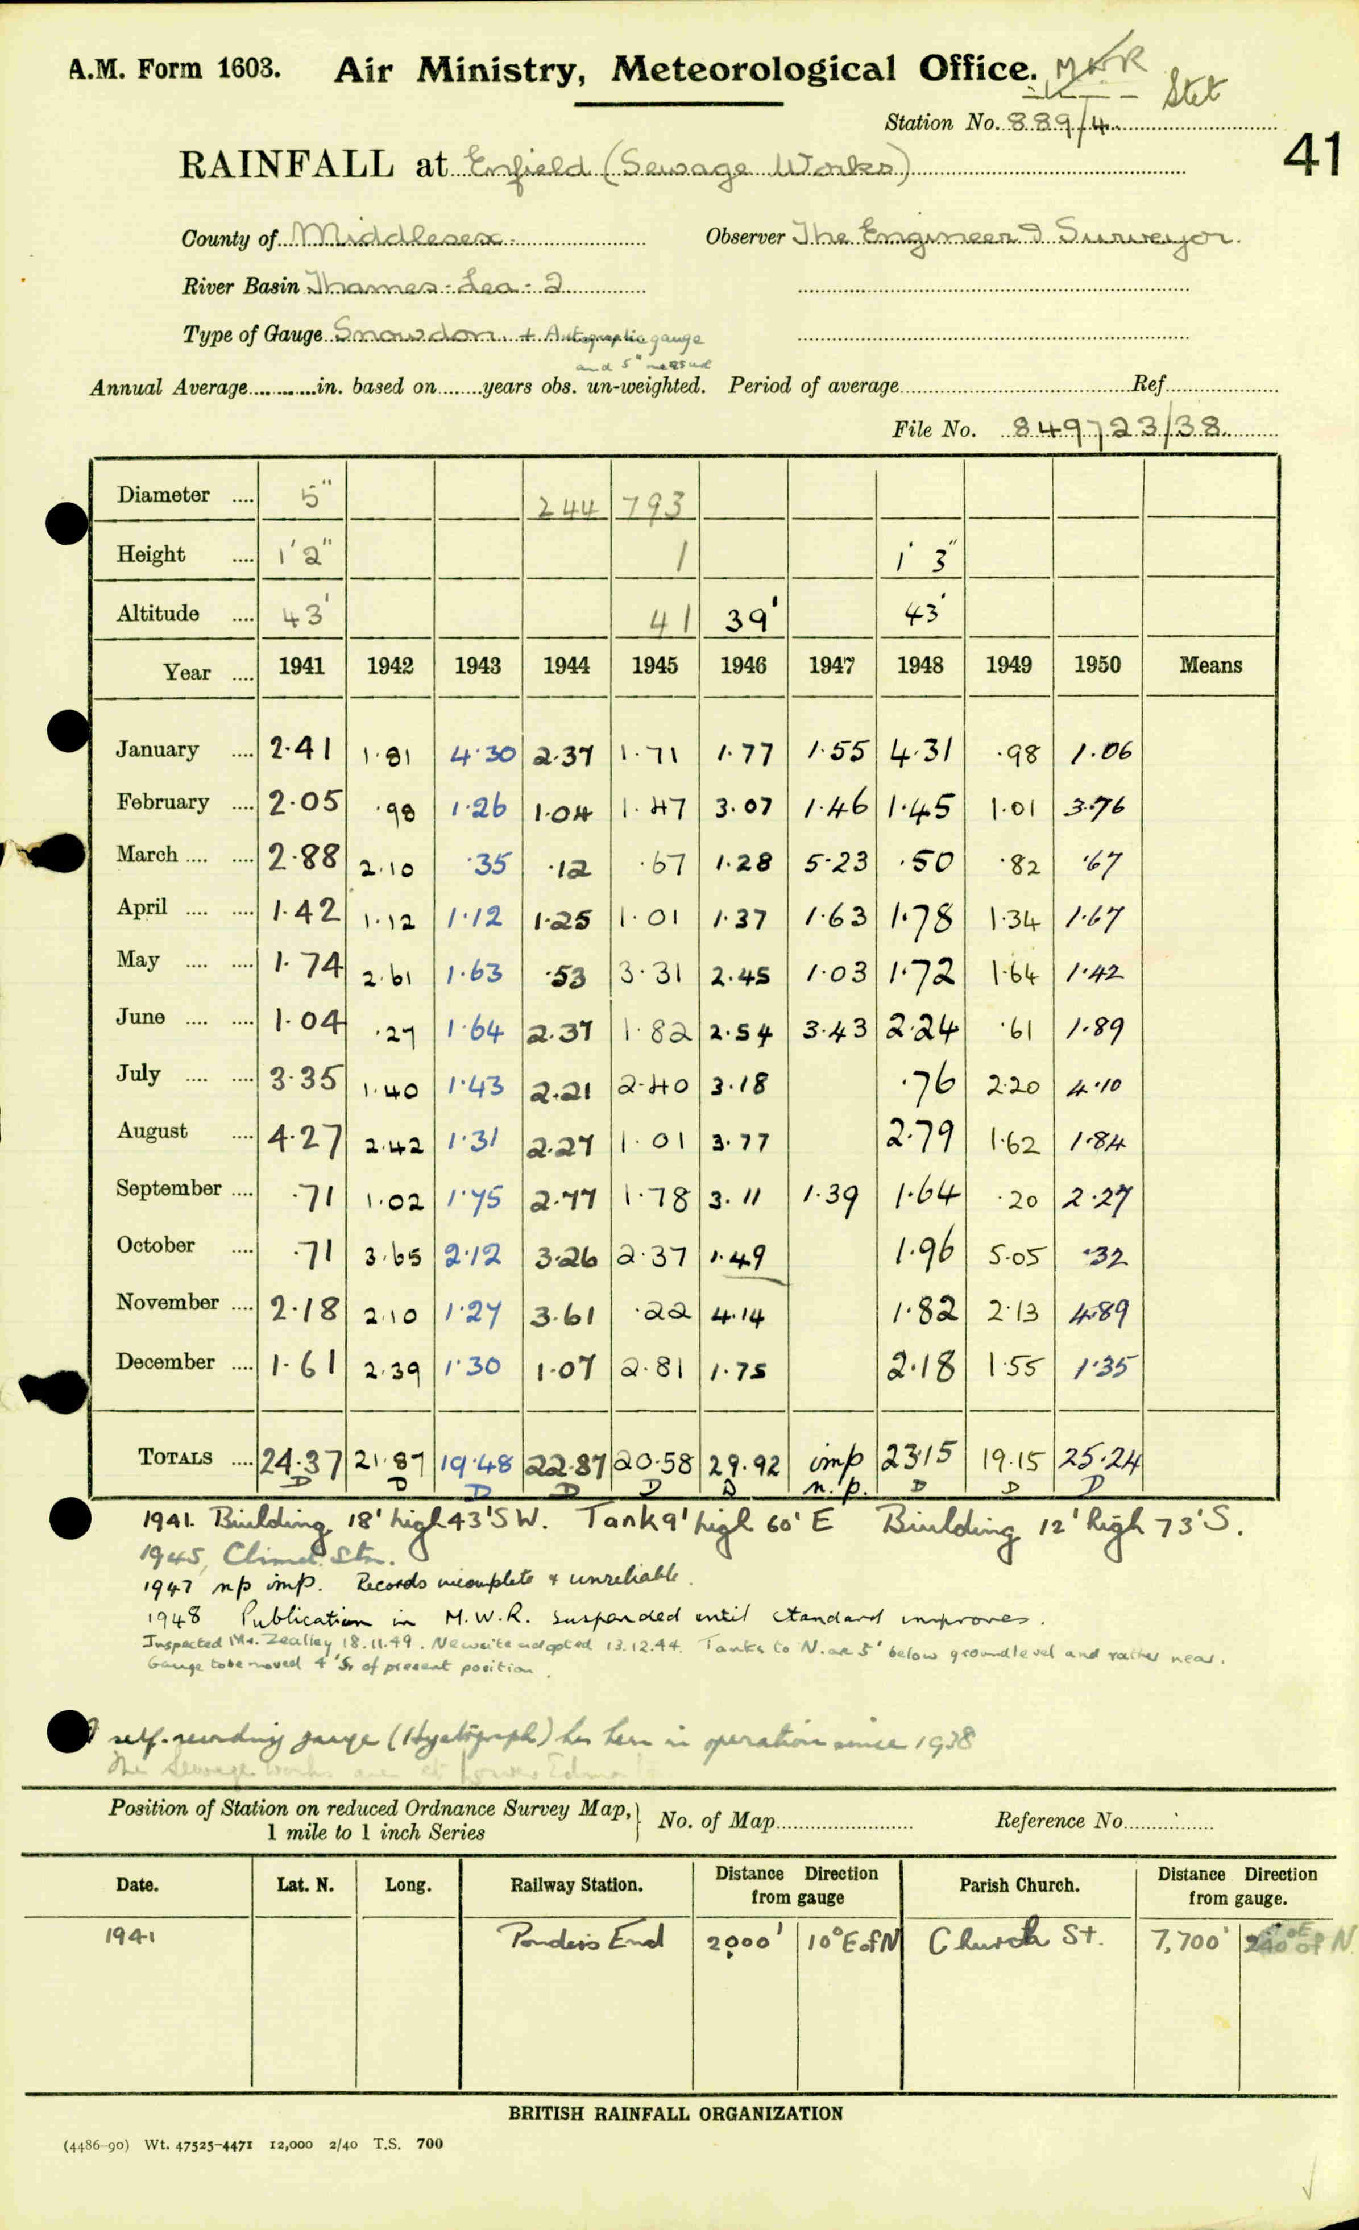 A.M. Form 1603. Air Ministry, Meteorological Office. M W R Stet
Station No. 889/4
41
RAINFALL at Enfield (Sewage Works)
County of Middlesex. Observer The Engineer & Surveyor.
River Basin Thames - Lea - 2
Type of Gauge Snowdon + Autographic gauge
and 5" measure
Annual Average in. based on years obs. un-weighted. Period of average Ref
File No. 849723/38
Diameter 5" 244 793
Height 1' 2" 1 1' 3"
Altitude 43' 41 39' 43'
Year 1941 1942 1943 1944 1945 1946 1947 1948 1949 1950 Means
January 2.41 1.81 4.30 2.37 1.71 1.77 1.55 4.31 .98 1.06
February 2.05 .98 1.26 1.04 1.47 3.07 1.46 1.45 1.01 3.76
March 2.88 2.10 .35 .12 .67 1.28 5.23 .50 .82 .67
April 1.42 1.12 1.12 1.25 1.01 1.37 1.63 1.78 1.34 1.67
May 1.74 2.61 1.63 .53 3.31 2.45 1.03 1.72 1.64 1.42
June 1.04 .27 1.64 2.37 1.82 2.54 3.43 2.24 .61 1.89
July 3.35 1.40 1.43 2.21 2.40 3.18 .76 2.20 4.10
August 4.27 2.42 1.31 2.27 1.01 3.77 2.79 1.62 1.84
September .71 1.02 1.75 2.77 1.78 3.11 1.39 1.64 .20 2.27
October .71 3.65 2.12 3.26 2.37 1.49 1.96 5.05 .32
November 2.18 2.10 1.27 3.61 .22 4.14 1.82 2.13 4.89
December 1.61 2.39 1.30 1.07 2.81 1.75 2.18 1.55 1.35
TOTALS 24.37 21.87 19.48 22.87 20.58 29.92 imp 23.15 19.15 25.24
D D D D D D n.p. D D D
1941. Building 18' high 43' SW. Tank 9' high 60' E Building 12' high 73' S.
1945, Climat. Stn.
1947 np imp. Records incomplete & unreliable.
1948 Publication in M.W.R. suspended until standard improves.
Inspected Mr. Zealley 18.11.49. New site adopted 13.12.44. Tanks to N. are 5' below ground level and rather near.
Gauge to be moved 4' S. of present position.
self-recording gauge (Hyetograph) has been in operation since 1938
The Sewage Works are at
Position of Station on reduced Ordnance Survey Map, No. of Map Reference No
1 mile to 1 inch Series
Date. Lat. N. Long. Railway Station. Distance Direction from gauge Parish Church. Distance Direction from gauge.
1941 Ponders End 2000' 10° E of N Church St. 7,700' 240° of N
BRITISH RAINFALL ORGANIZATION
(4486-90) Wt. 47525-4471 12,000 2/40 T.S. 700